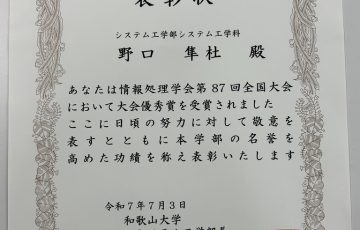 表彰状
システム工学部システム工学科
野口 隼杜 殿
あなたは情報処理学会第87回全国大会
において大会優秀賞を受賞されました
ここに日頃の努力に対して敬意を
表すとともに本学部の名誉を
高めた功績を称え表彰いたします
令和7年7月3日
和歌山大学